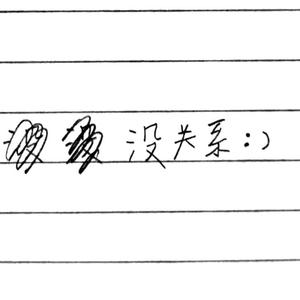 没关系:)